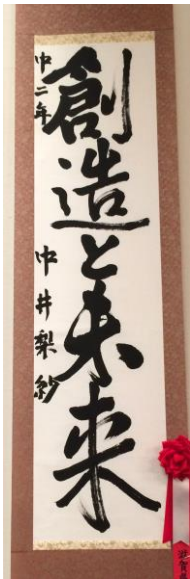 創造と未来
中二年 中井梨紗